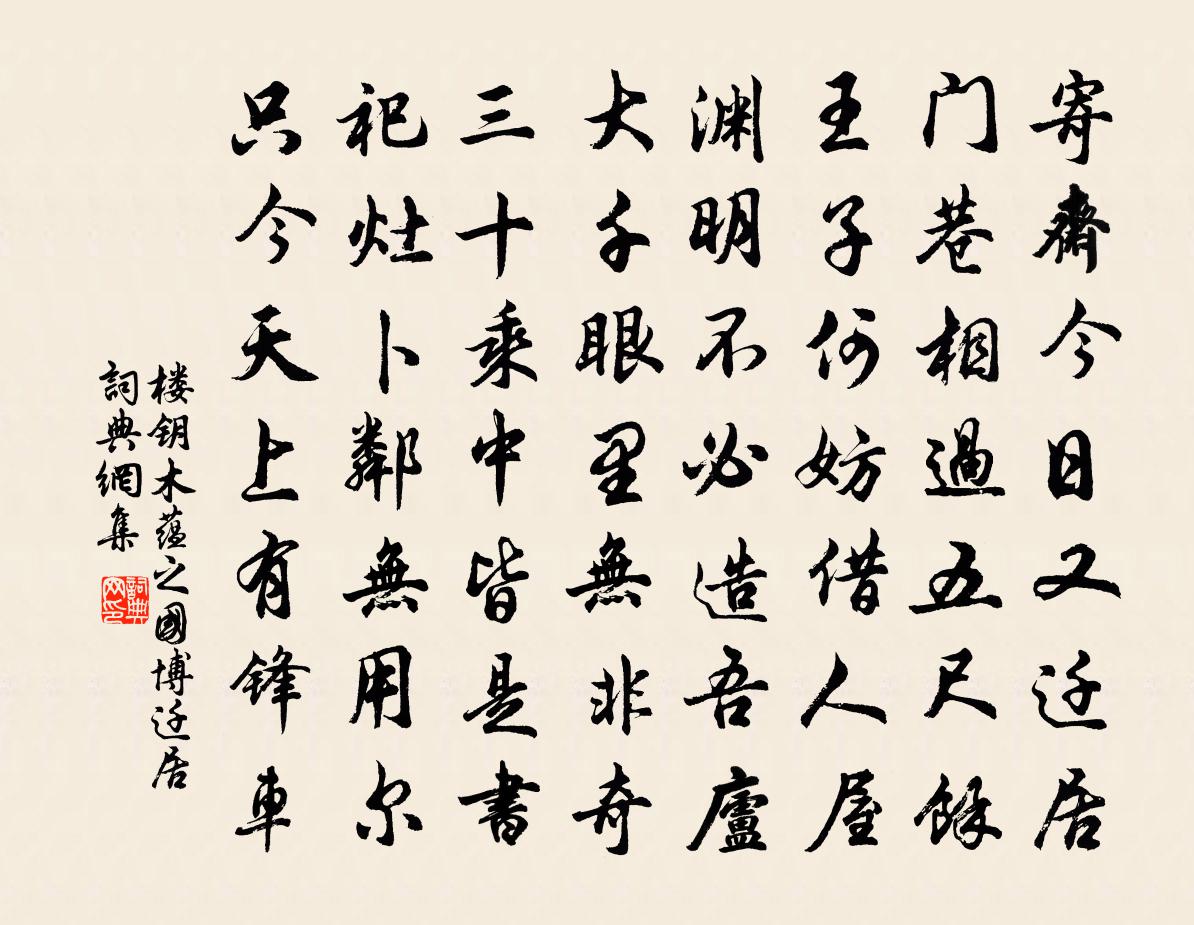 寄齋今日又迁居
门巷相過五尺餘
王子何妨借人屋
渊明不必造吾廬
大千眼里無非奇
三十乘中皆是書
祀灶卜鄰無用尔
只今天上有锋車
楼钥木蕴之國博迁居
詞典網集